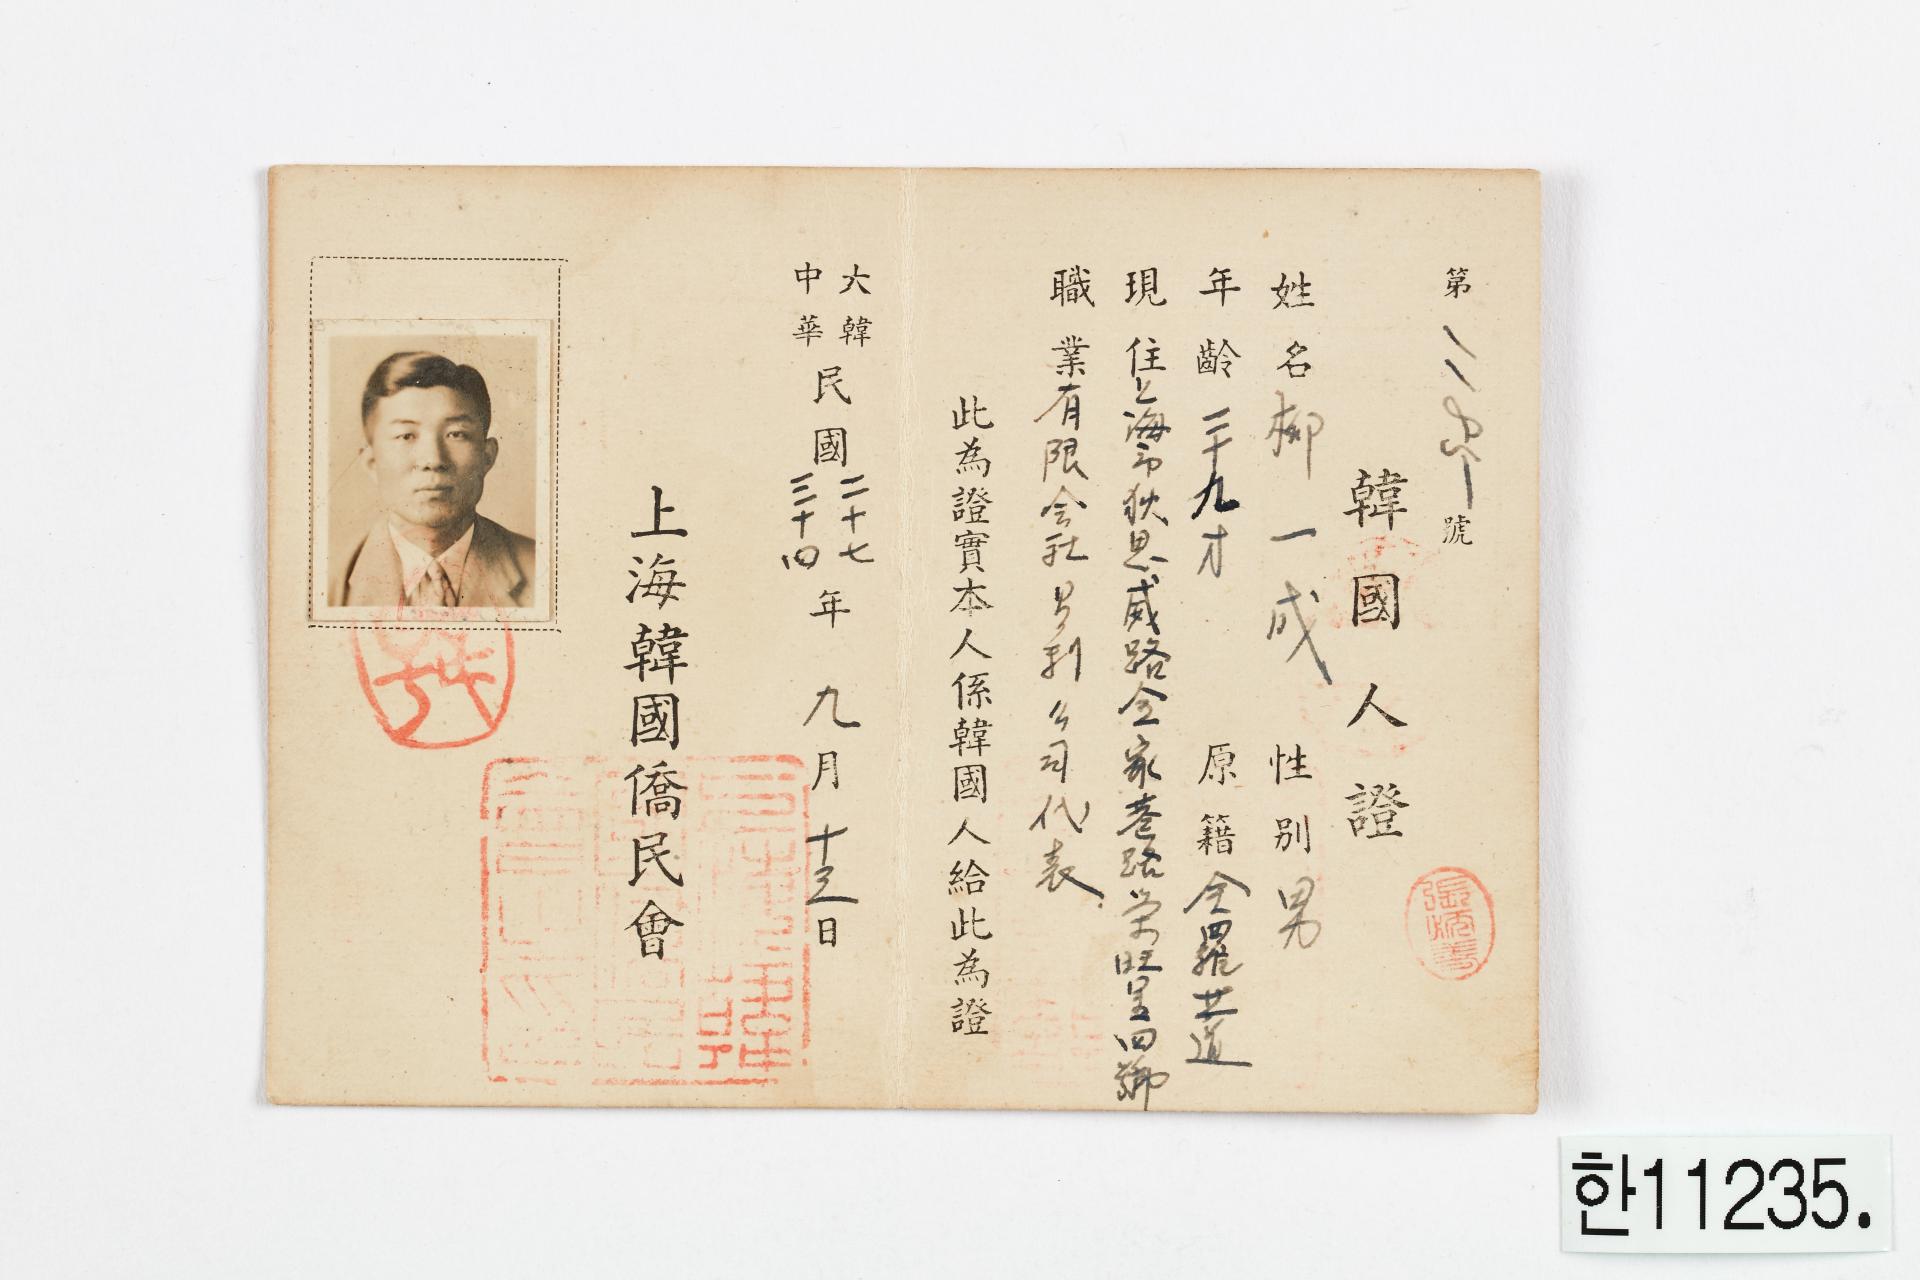 第 號
韓國人證
姓名 柳一成 性別 男
年齡 二十九才 原籍 全羅北道
現住 上海市狄思威路全家巷路榮旺里四號
職業 有限会社 利公司代表
此為證實本人係韓國人給此為證
大韓民國二十七年九月十三日
中華民國三十四年九月十三日
上海韓國僑民會
張炳善
한11235.